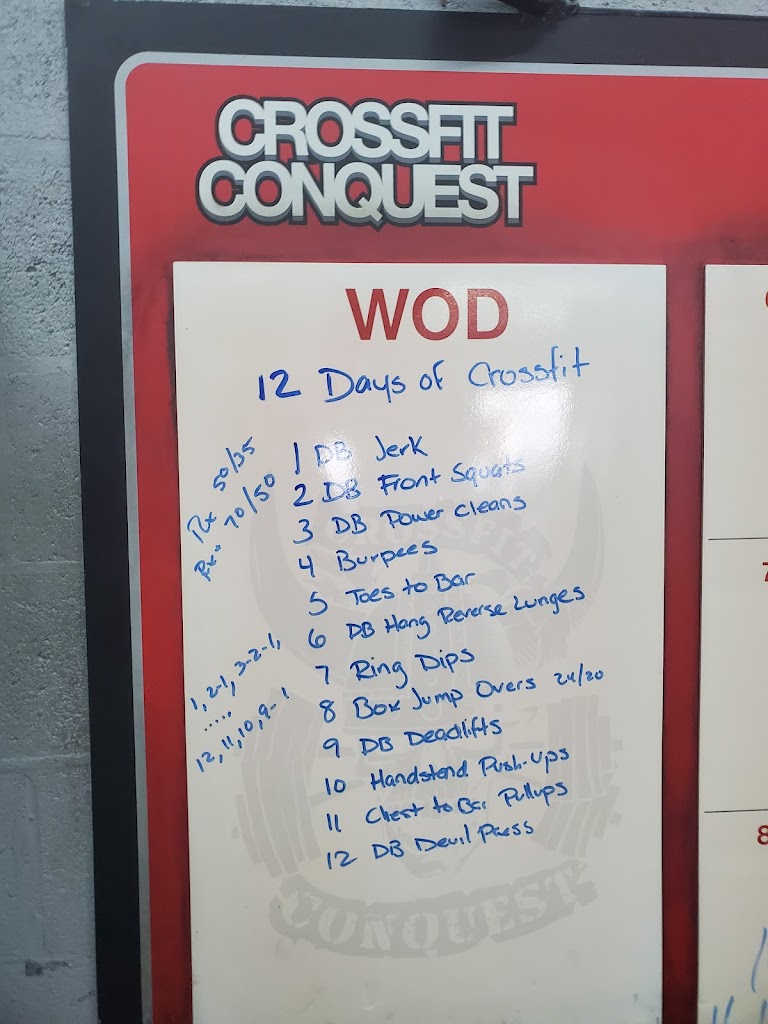 CROSSFIT
CONQUEST
WOD
12 Days of Crossfit
Rx 50/35
Rx+ 70/50
1 DB Jerk
2 DB Front Squats
3 DB Power Cleans
4 Burpees
5 Toes to Bar
6 DB Hang Reverse Lunges
7 Ring Dips
8 Box Jump Overs 24/20
9 DB Deadlifts
10 Handstand Push-ups
11 Chest to Bar Pullups
12 DB Devil Press
1, 2-1, 3-2-1,
.....
12, 11, 10, 9-1
CROSSFIT
CONQUEST
7
8